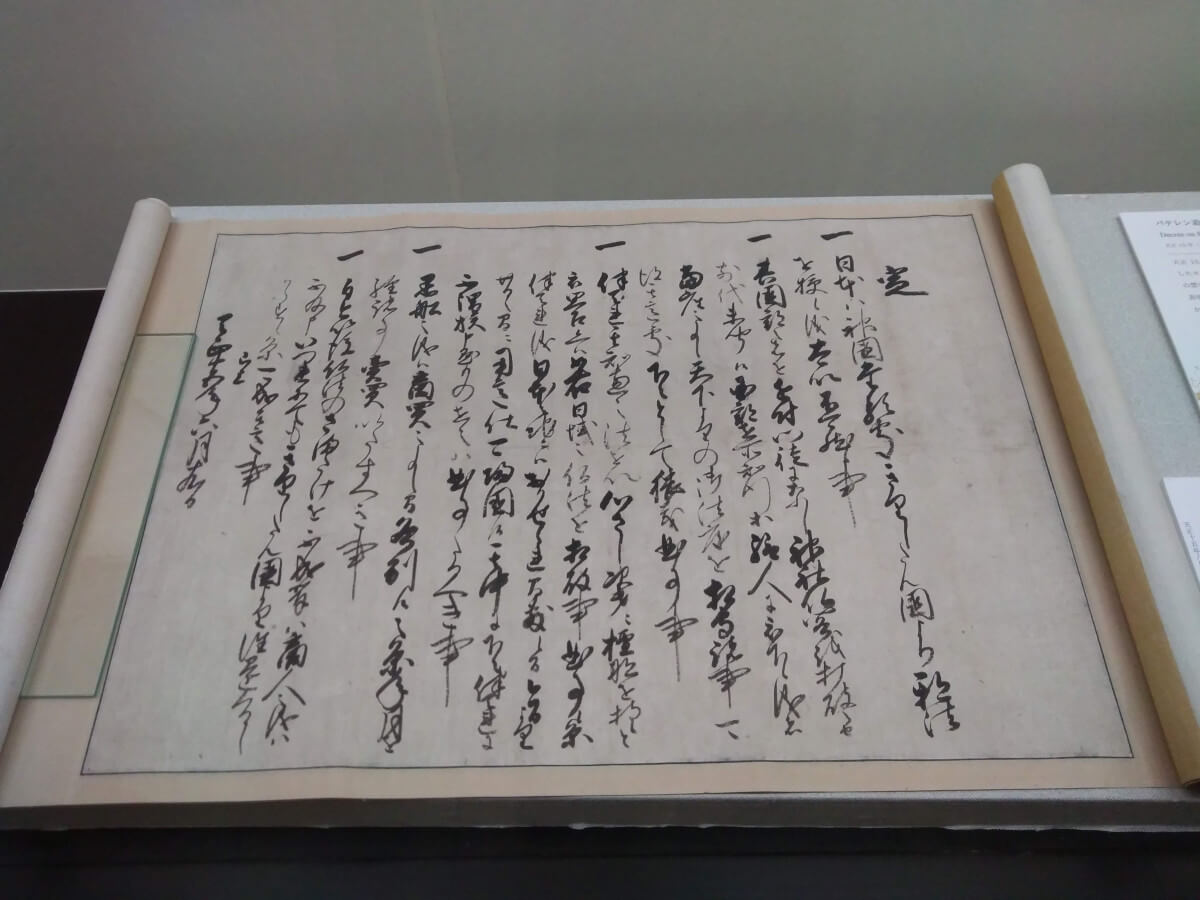 定
一 日本ハ神国たる処きりしたん国より邪法
を授候儀太以不可然候事
一 其国郡之者を近付門徒になし神社仏閣を打破之由
前代未聞候国郡在所知行等給人に被下候儀者
当座之事候天下よりの御法度を相守諸事可
得其意処下々として猥義曲事事
一 伴天連其知恵之法を以心さし次第ニ檀那を持候と
被思召候ヘハ如右日域之仏法を相破事曲事候条
伴天連儀日本之地ニハおかせられ間敷候間今日より
廿日之間ニ用意仕可帰国候其中に下々伴天連に
不謂族申懸もの在之ハ曲事たるへき事
一 黒船之儀ハ商買之事候間各別候之条年月を
経諸事売買いたすへき事
一 自今以後仏法のさまたけを不成輩ハ商人之儀ハ
不及申いつれにてもきりしたん国より往還くるし
からす候条可成其意事
已上
天正十五年六月十九日
バテレン追
Decree on